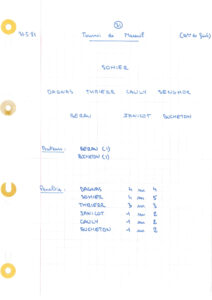 31.5.81
Tournoi de Masseuil
SOHIER
DAGNAS THRIERR CAULY SENGHOR
BERAU JANICOT BUCHETON
Buteurs : BERAU (1)
BUCHETON (1)
Penalties : DAGNAS 4 sur 4
SOHIER 4 sur 5
THRIERR 3 sur 3
JANICOT 1 sur 2
CAULY 1 sur 2
BUCHETON 1 sur 2